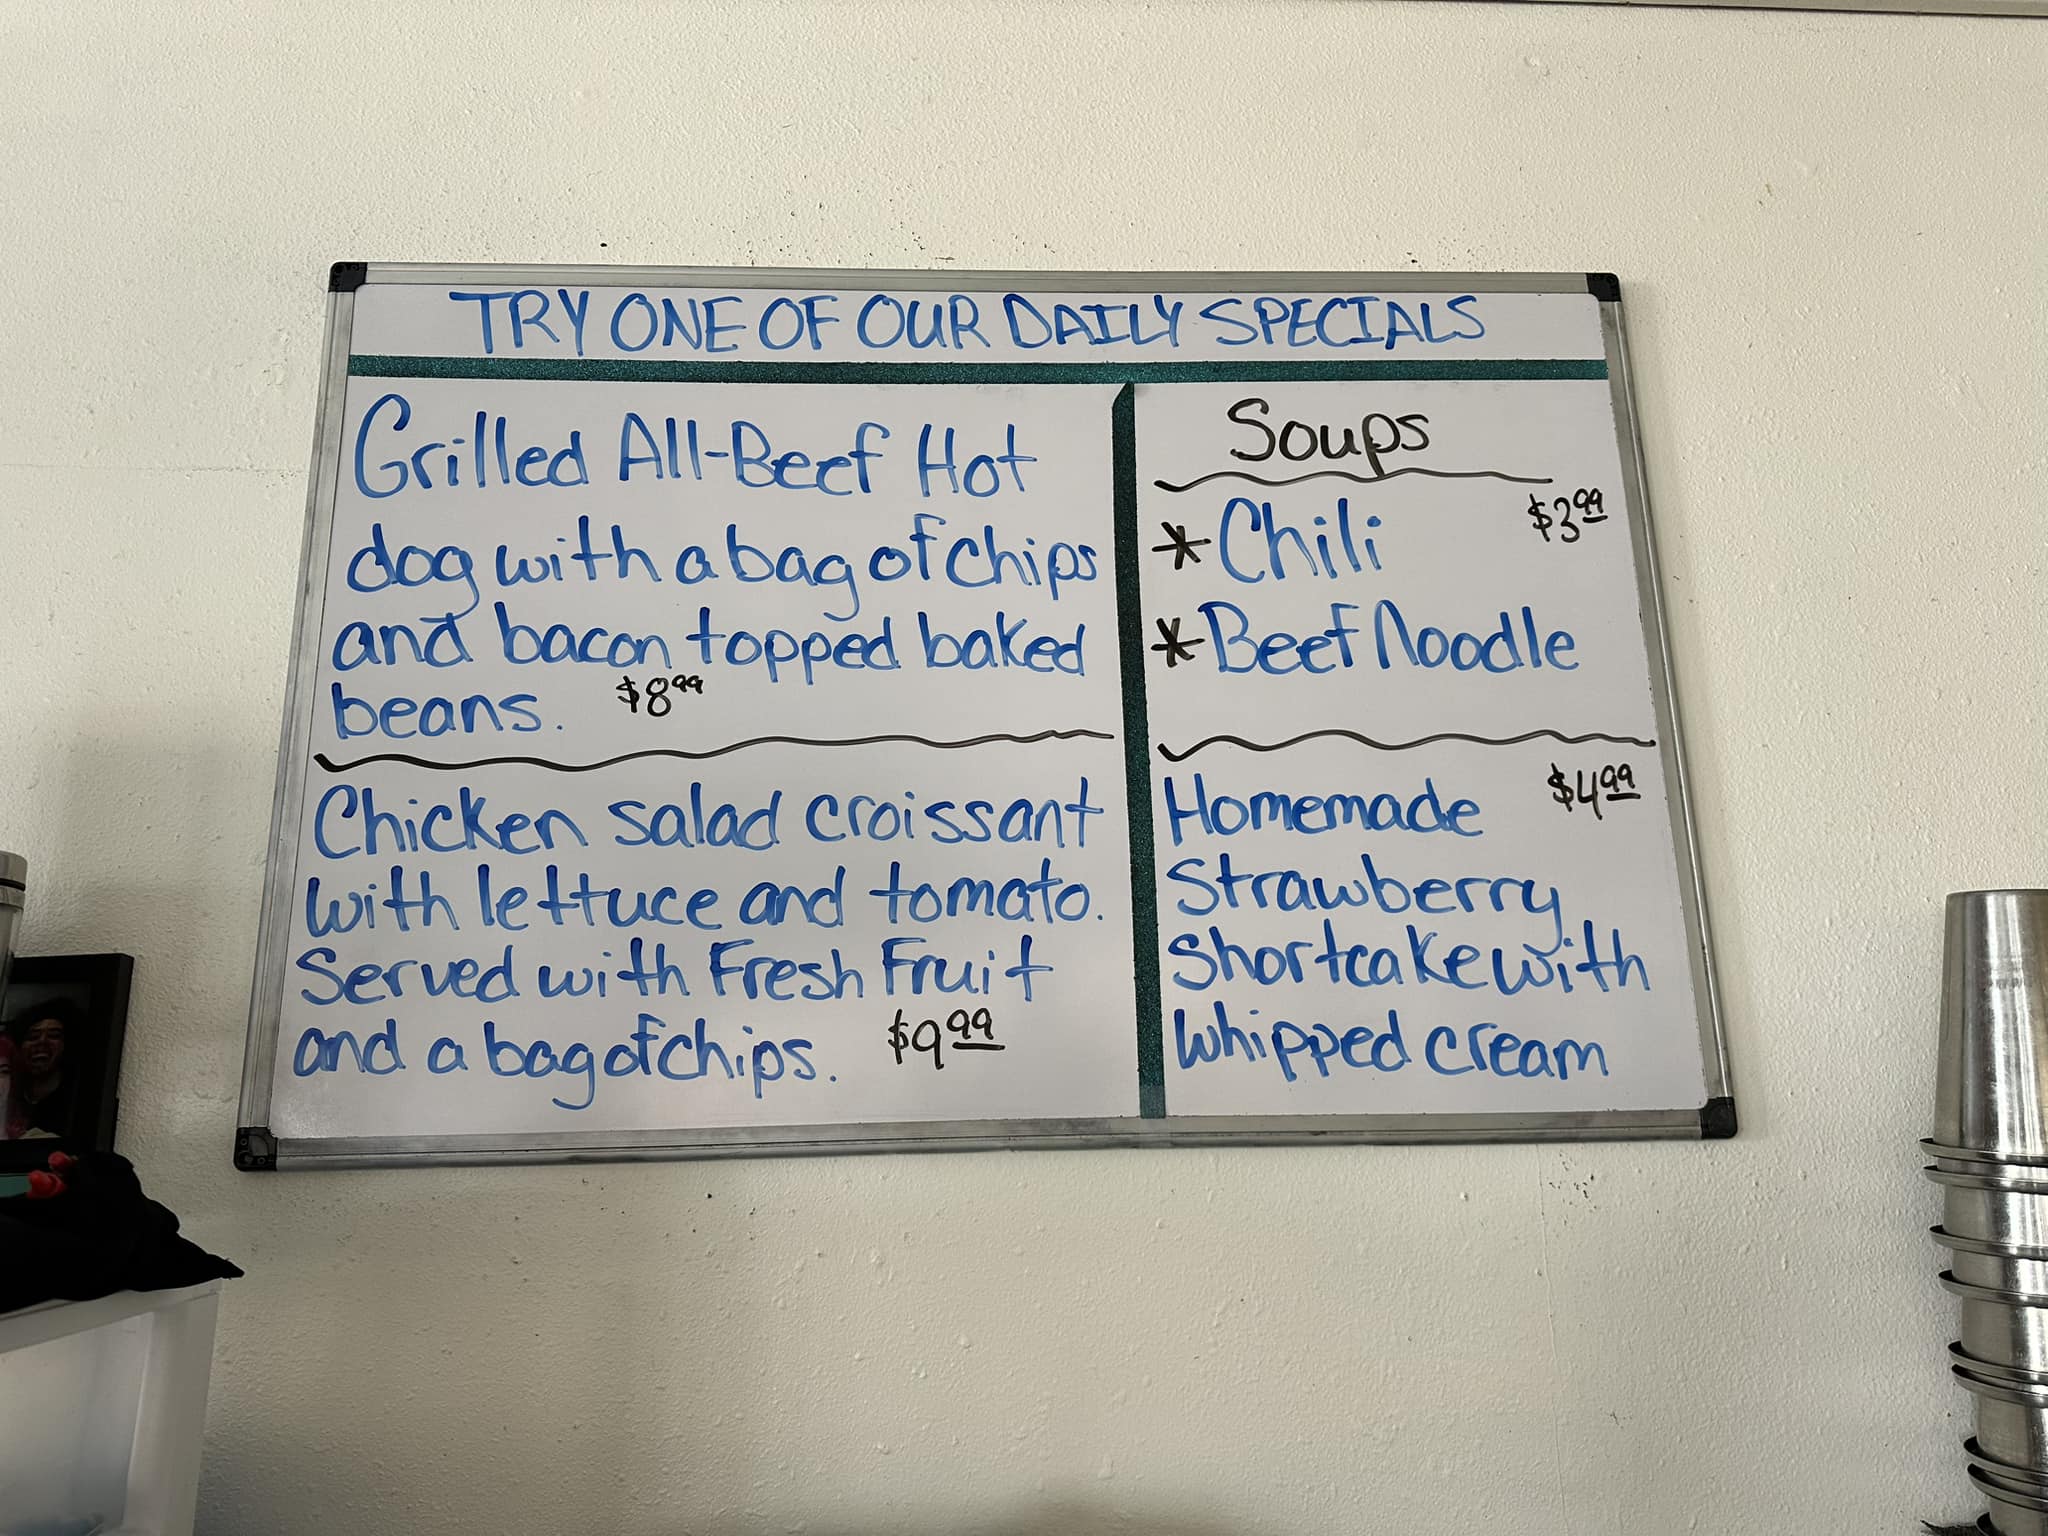 TRY ONE OF OUR DAILY SPECIALS
Grilled All-Beef Hot
dog with a bag of chips
and bacon topped baked
beans. $8.99
Chicken salad croissant
with lettuce and tomato.
Served with Fresh Fruit
and a bag of chips. $9.99
Soups
*Chili $3.99
*Beef Noodle
Homemade $4.99
Strawberry
Shortcake with
whipped cream